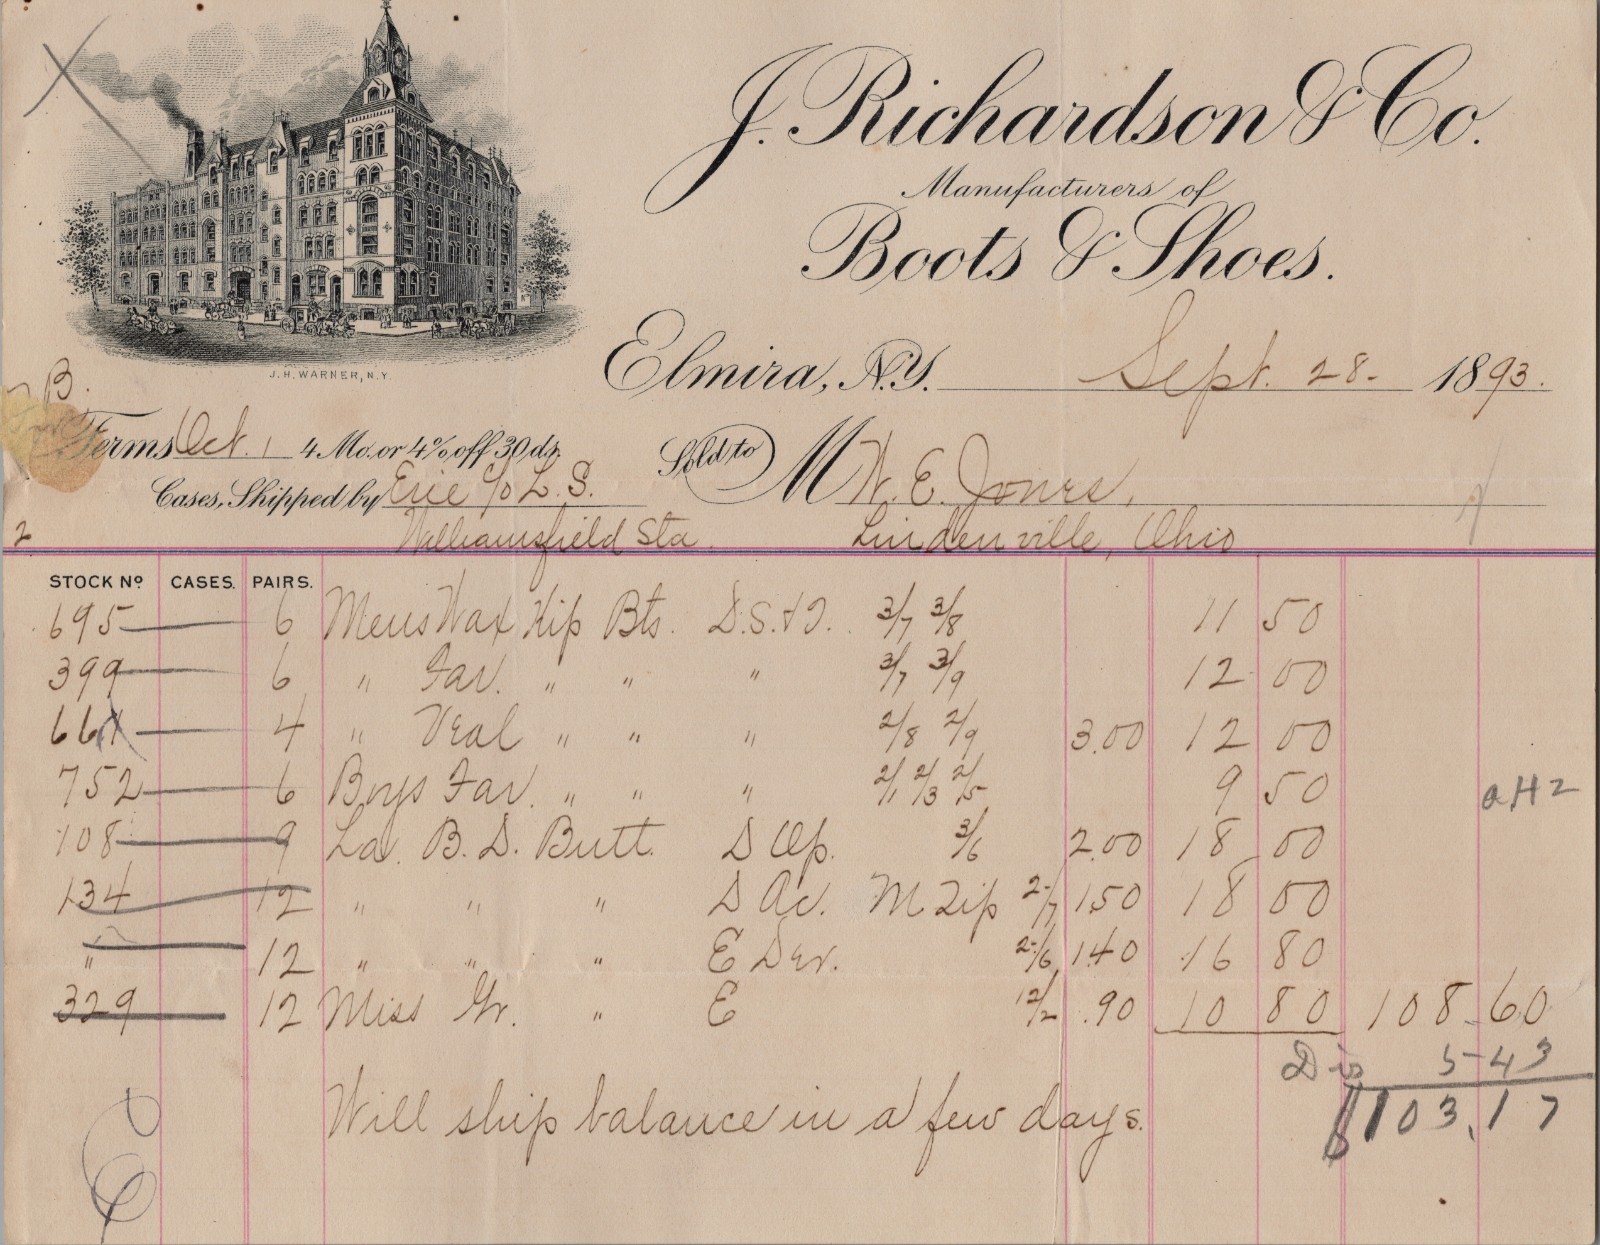 J. Richardson & Co.
Manufacturers of
Boots & Shoes.
J.H. WARNER, N.Y.
Elmira, N.Y. Sept. 28 - 1893.
B.
Terms Oct. 1 4 Mo. or 4% off 30 ds.
Sold to M W. E. Jones,
Cases, Shipped by Erie c/o L. S.
2 Williamsfield Sta. Lindenville, Ohio
STOCK No CASES. PAIRS.
695 6 Mens Wax Kip Bts. D.S.&T. 3/7 3/8 11 50
399 6 " Fav. " " " 3/7 3/9 12 00
66 4 " Veal " " " 2/8 2/9 3.00 12 00
752 6 Boys Fav. " " " 2/1 2/3 2/5 9 50
108 9 La. B. D. Butt. D Op. 3/6 2.00 18 00
134 12 " " " D Ac. M Tip 2-/7 150 18 00
" 12 " " " E Der. 2-/6 140 16 80
329 12 Miss Gr. " E 12/2 .90 10 80 108.60
Dis 5-43
$103.17
Will ship balance in a few days.